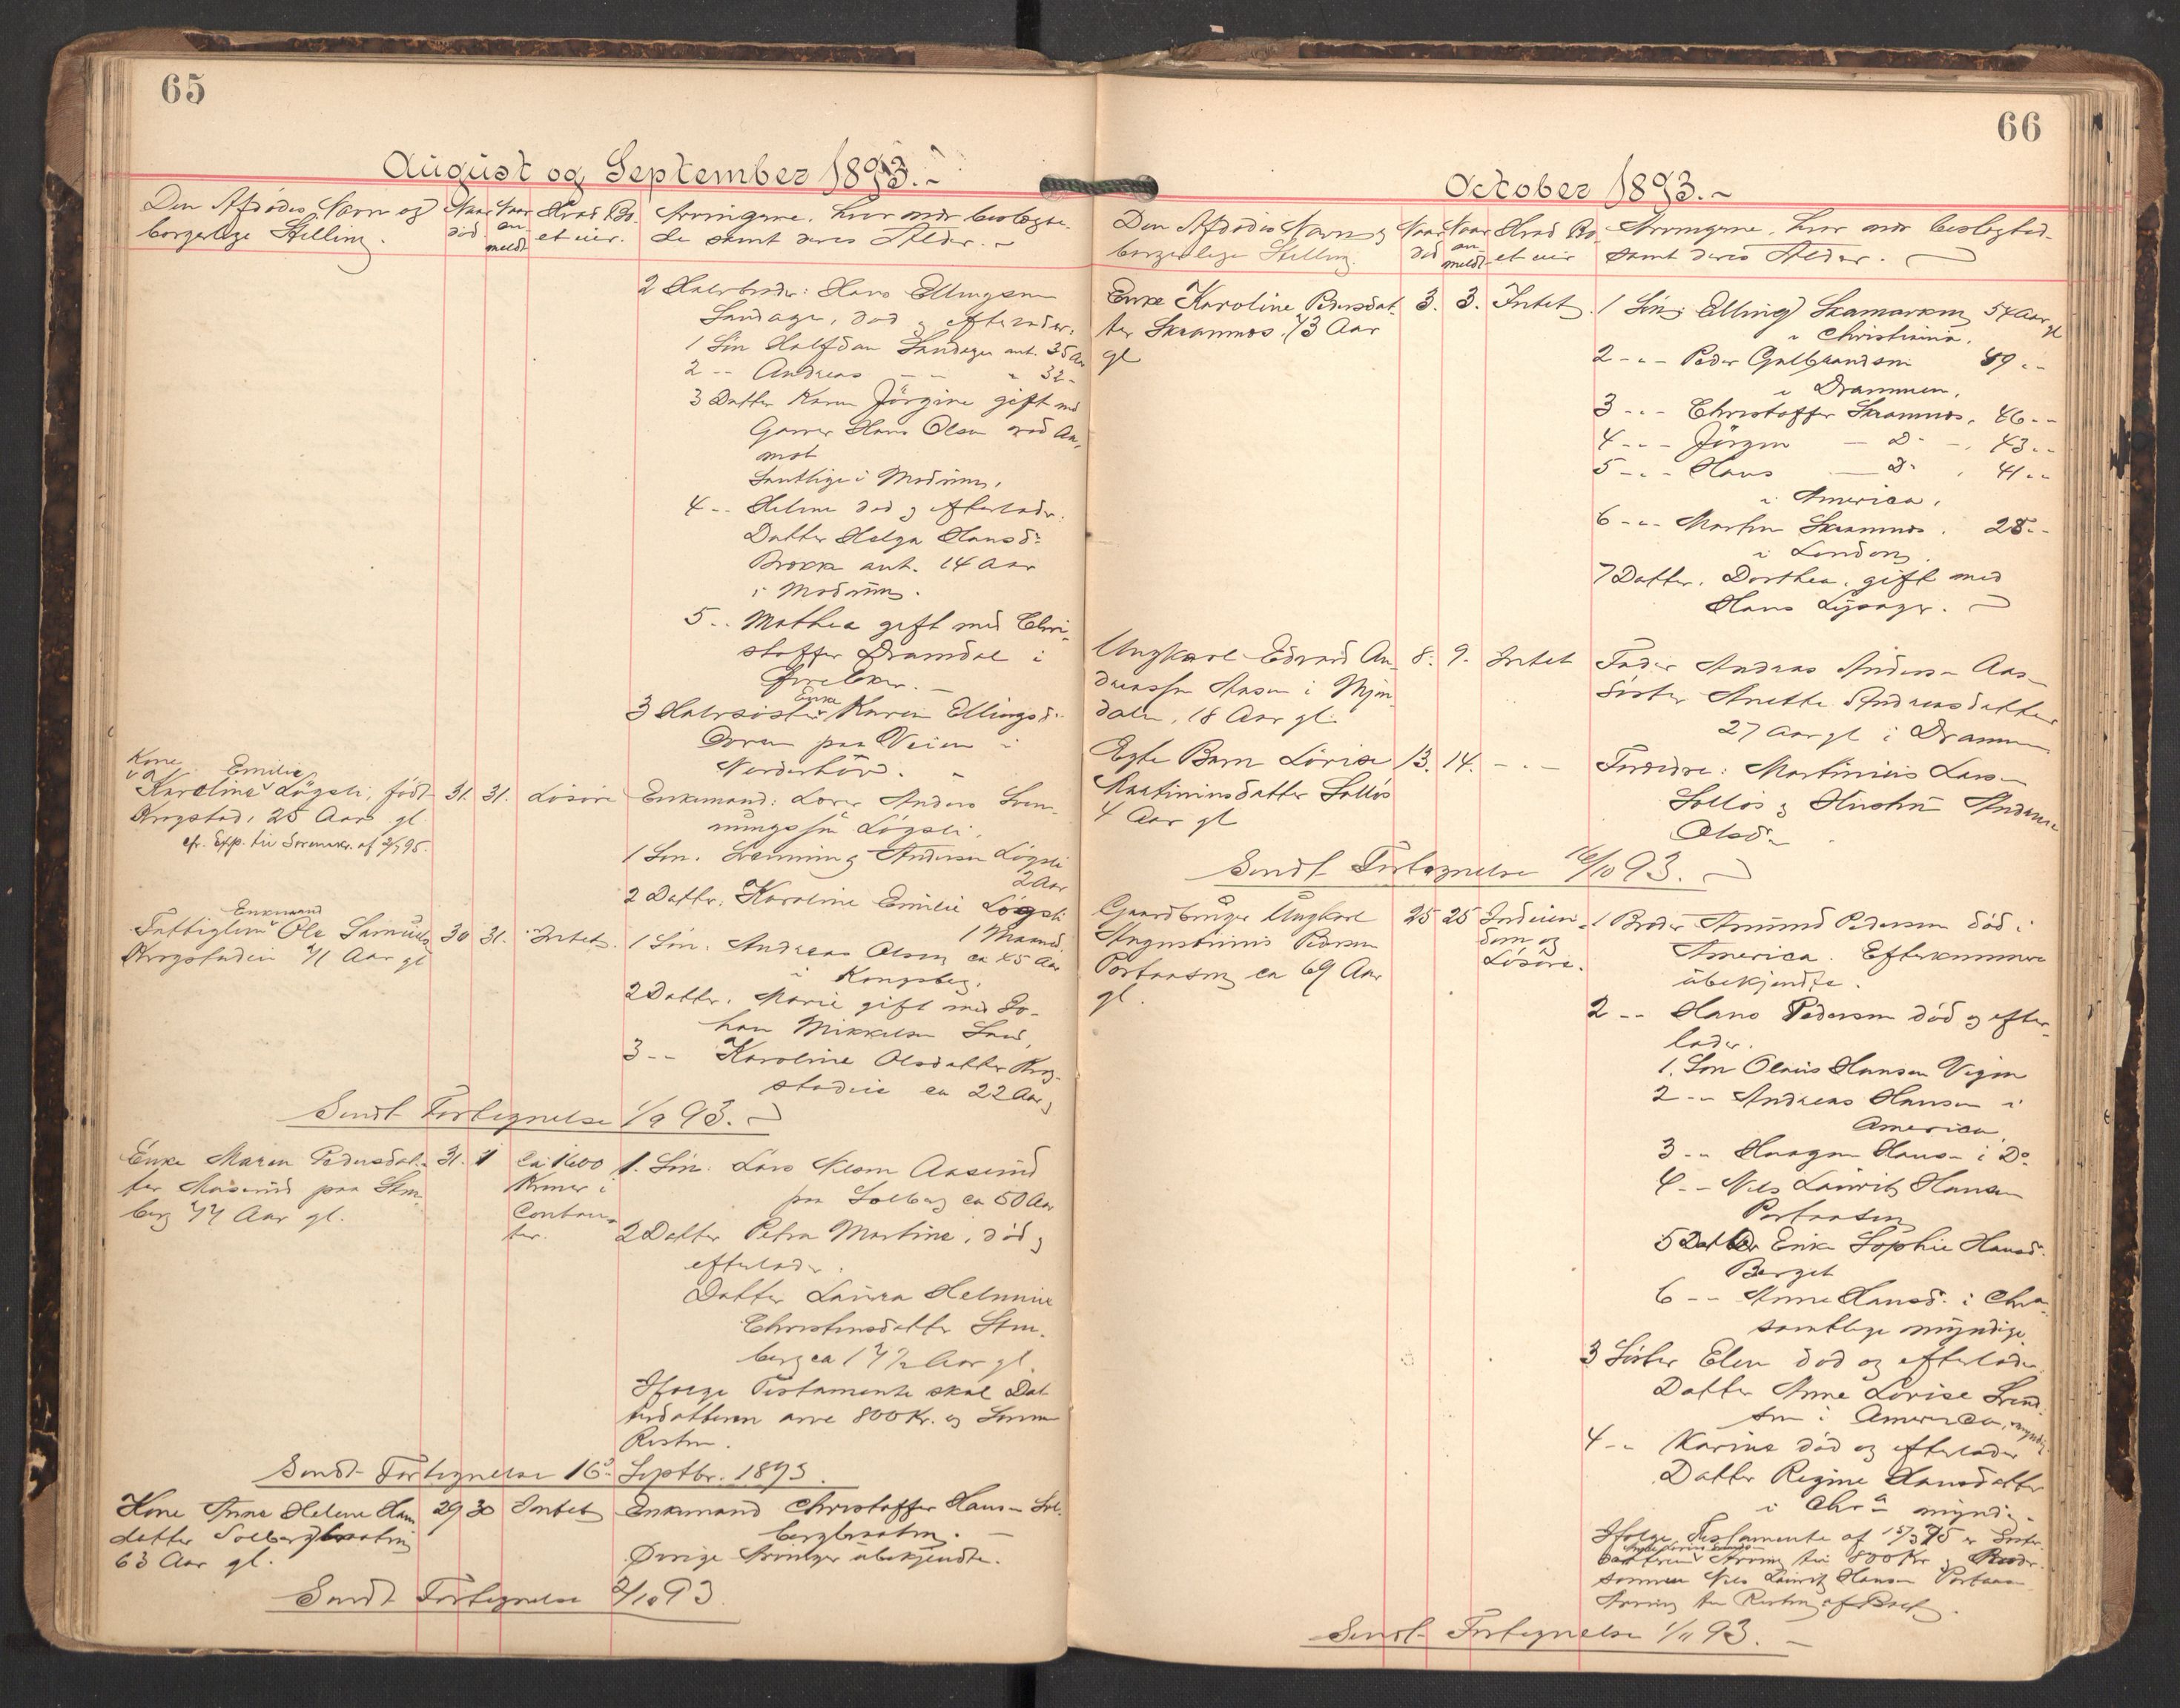 65
August og September 1893.
Den Afdødes Navn og
borgerlige Stilling.
Naar
død
Naar
an-
meldt
Hvad Bo-
et eier.
Arvingerne, hvor nær beslægte-
de samt deres Alder.
2 Halvbroder: Hans Ellingsen
Sandager, død og efterlader:
1 Søn Halfdan Sandager ant. 35 Aar
2 -- Andreas - - " 32 -
3 Datter Karen Jørgine gift med
Garver Hans Olsen ved Aa-
mot
Samtlige i Modum.
4 -- Helene død og efterlader:
Datter Helga Hansd.
Brokke ant. 14 Aar
i Modum.
5 -- Mathea gift med Chri-
stoffer Dramdal i
Øvre Eker.
3 Halvsøster Enke Karen Ellingsd.
Oren paa Veien i
Norderhov.
Kone
Karoline Emilie Løgsli, født
Krogstad, 25 Aar gl.
cfr. Exp. til Sorenskr. af 2/7 95.
31. 31. Løsøre
Enkemand: Lærer Anders Svem-
mingsøn Løgsli.
1 Søn. Svemming Andersen Løgsli
2 Aar
2 Datter. Karoline Emilie Løgsli
1 Maaned
Enkemand
Fattiglem Ole Samuels.
Krogstadeie 71 Aar gl
30 31. Intet.
1 Søn. Andreas Olsen ca 45 Aar
i Kongsberg.
2 Datter. Marie gift med Jo-
han Mikkelsen Sand.
3 -- Karoline Olsdatter Krog-
stadeie ca 22 Aar
Sendt Fortegnelse 1/9 93.
Enke Maren Pedersdat-
ter Aasmund paa Sten-
berg 77 Aar gl.
31. 1
Ca 1600
Kroner i
Contan-
ter.
1. Søn: Lars Nilsen Aasmund
paa Solberg ca 50 Aar
2 Datter Petra Martine, død og
efterlader:
Datter Laura Helmine
Christensdatter Sten-
berg ca 17½ Aar gl.
Ifølge Testamente skal Dat-
terdatteren arve 800 Kr. og Sønnen
Resten.
Sendt Fortegnelse 16d Septbr. 1893.
Kone Anne Helene Hans-
datter Solbergbraaten
63 Aar gl.
29 30 Intet
Enkemand Christoffer Hansen Sol-
bergbraaten.
Øvrige Arvinger ubekjendte.
Sendt Fortegnelse 2/10 93
66
October 1893.
Den Afdødes Navn og
borgerlige Stilling.
Naar
død
Naar
an-
meldt
Hvad Bo-
et eier
Arvingerne, hvor nær beslægted-
samt deres Alder.
Enke Karoline Pedersdat-
ter Skramnes. 73 Aar
gl
3. 3. Intet.
1 Søn: Elling Skamarken 54 Aar gl
i Christiania.
2 - - - Peder Gulbrandsen 49 - -
i Drammen.
3 - - - Christoffer Skramnes. 46 - -
4 - - - Jørgen - Do - . 43 - -
5 - - - Hans - Do . 41 - -
i America.
6 - - - Martin Skramnes. 28 - -
i London.
7 Datter. Dorthea, gift med
Hans Lysager.
Ungkarl Edvard An-
dreassen Aasen i Mjøn-
dalen, 18 Aar gl.
8. 9. Intet
Fader Andreas Anderse- Aas-
Søster Anette Andreasdatter
27 Aar gl i Drammen
Egte Barn Lovise
Martiniusdatter Solløs
4 Aar gl
13. 14. - - -
Forældre: Martinius Larse-
Solløs og Hustru Andrine
Olsd.
Sendt Fortegnelse 16/10 93.
Gaardbruger Ungkarl
Augustinius Pedersen
Portaasen ca 69 Aar
gl.
25 25
Indeien-
dom og
Løsøre.
1 Broder Amund Pedersen død i
America. Efterkommere
ubekjendte.
2 -- Hans Pedersen død og efter-
lader.
1. Søn Olaus Hansen Vegen
2 -- Andreas Hansen i
America
3 -- Haagen Hanse- i Do
4 -- Nils Lauritz Hansen
Portaasen
5 Datter Enke Sophie Hansd.
Berget
6 -- Anne Hansd. i Chra-
samtlige myndige.
3 Søster Elen død og efterlader
Datter Anne Lovise Svend-
sen i America, myndig
4 -- Karine død og efterlader
Datter Regine Hansdatter
i Chra myndig.
Ifølge Testamente af 15/3 75 er Søster-
datteren Arving til 800 Kr og Broder-
sønnen Nils Lauritz Hansen Portaas-
Arving til Resten af Boet.
Sendt Fortegnelse 1/11 93.